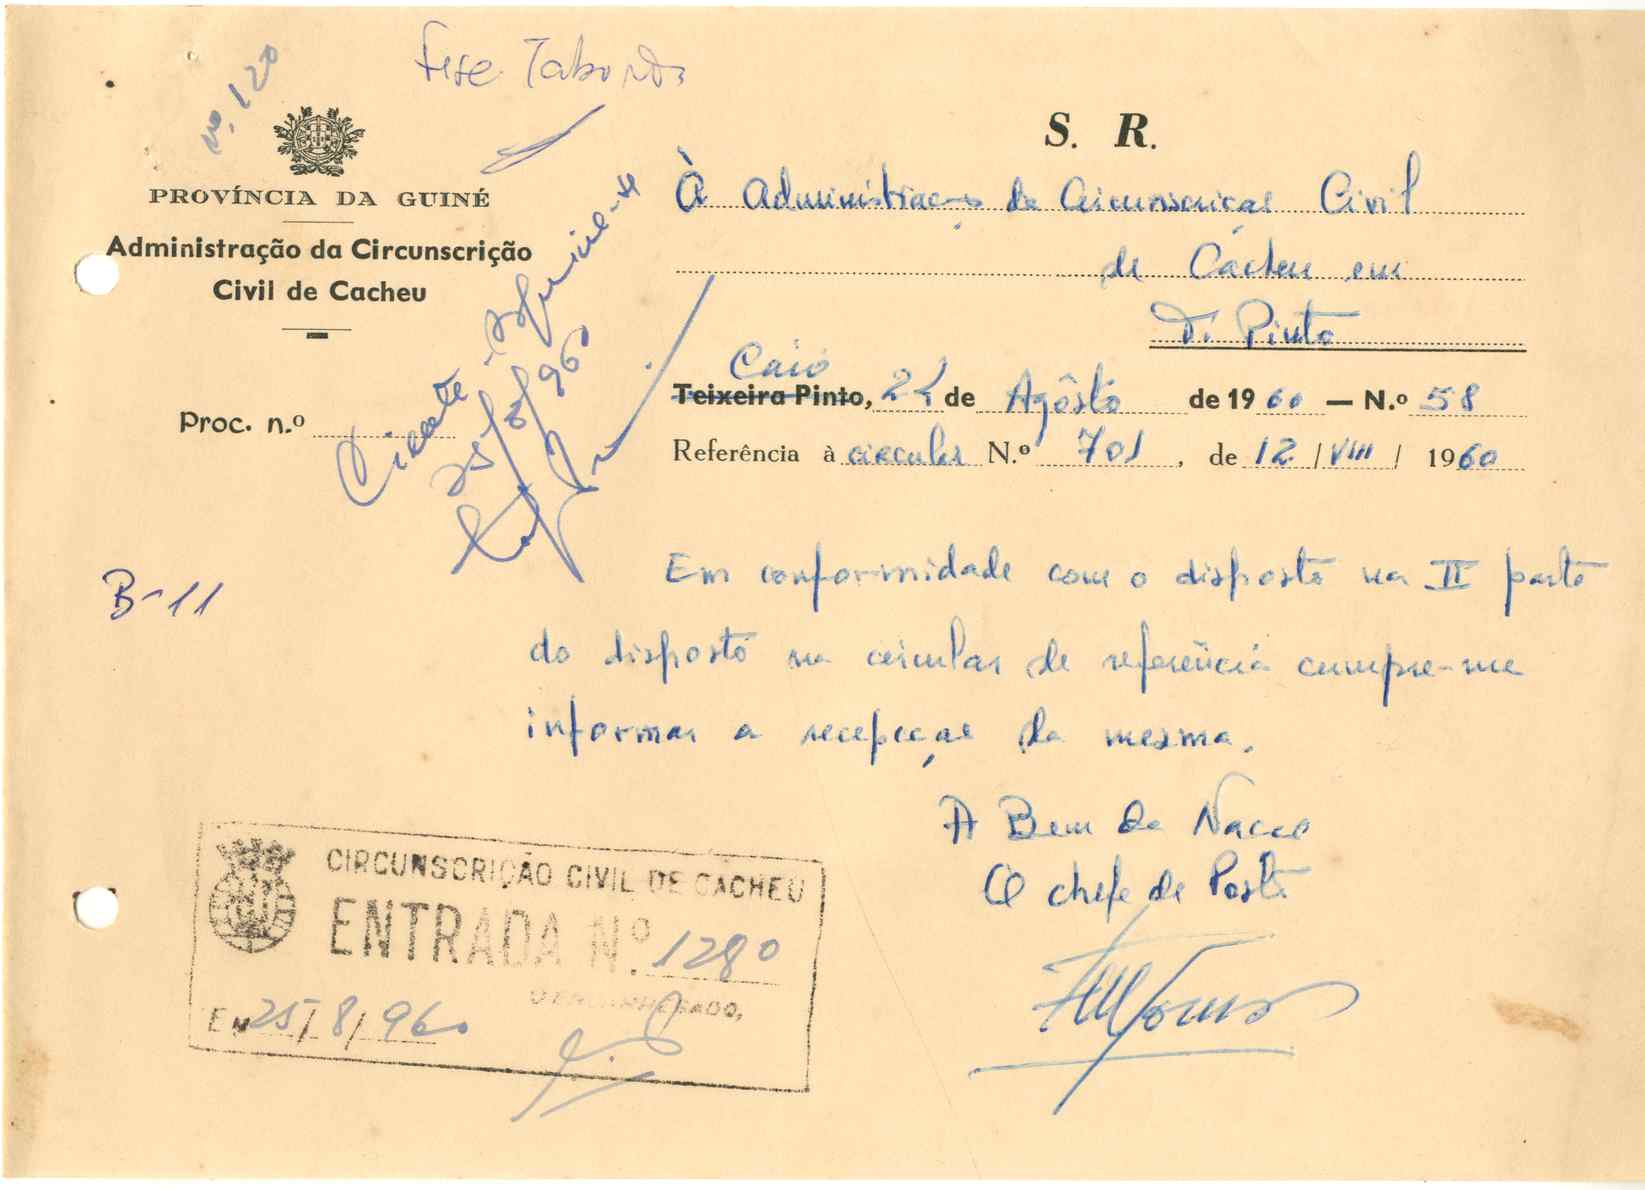 nº. 120
PROVÍNCIA DA GUINÉ
Administração da Circunscrição
Civil de Cacheu
Proc. n.º
B-11
Ciente
25/8/960
S. R.
À Administração da Circunscriçao Civil
de Cacheu em
T. Pinto
Caió
Teixeira Pinto, 24 de Agôsto de 1960 — N.º 58
Referência à circular N.º 701, de 12 / VIII / 1960
Em conformidade com o disposto na II parte
do disposto na circular de referência cumpre-me
informar a recepçao da mesma.
A Bem da Nacao
O chefe de Posto
CIRCUNSCRIÇÃO CIVIL DE CACHEU
ENTRADA N.º 1280
O ENCARREGADO,
EM 25/8/960